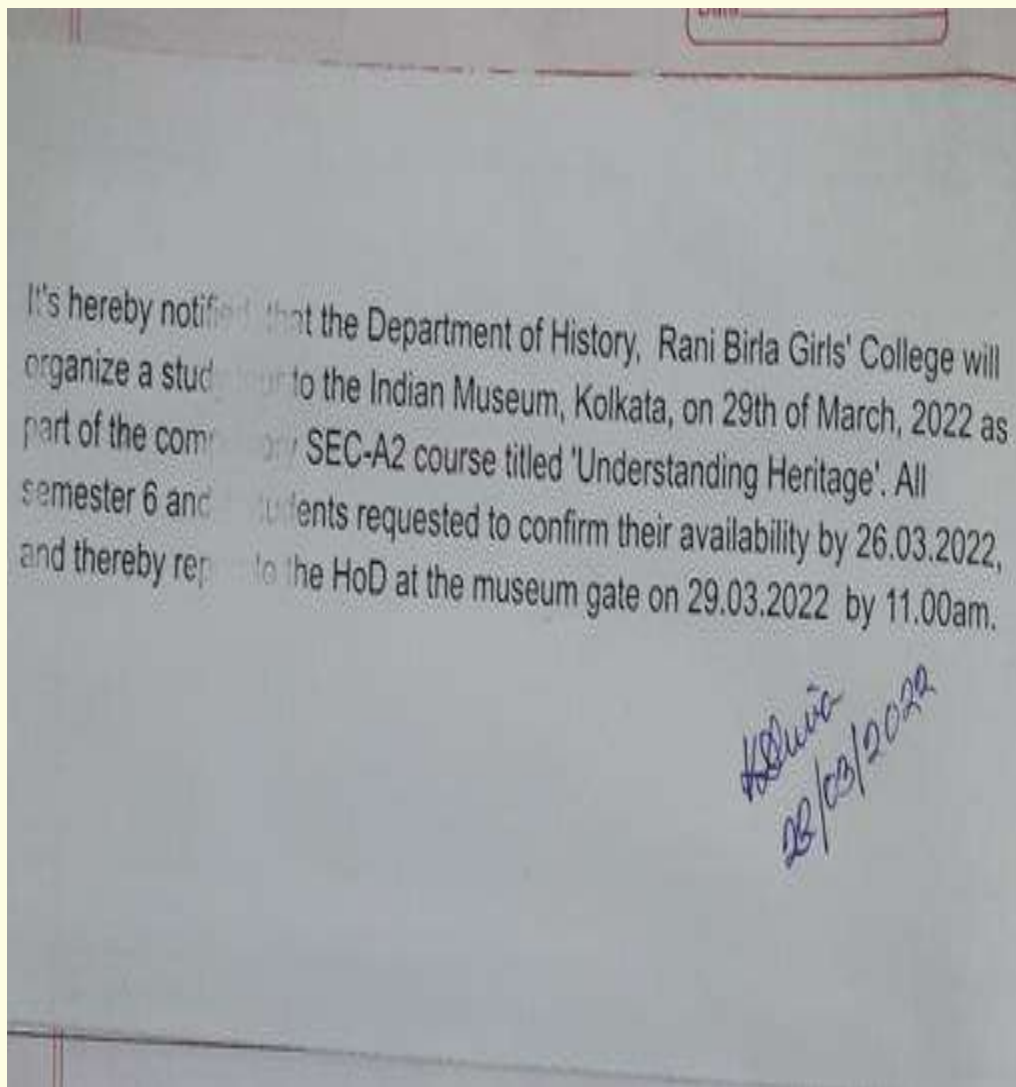 It's hereby notified that the Department of History, Rani Birla Girls' College will
organize a study tour to the Indian Museum, Kolkata, on 29th of March, 2022 as
part of the compulsory SEC-A2 course titled 'Understanding Heritage'. All
semester 6 and students requested to confirm their availability by 26.03.2022,
and thereby report to the HoD at the museum gate on 29.03.2022 by 11.00am.
/03/2022